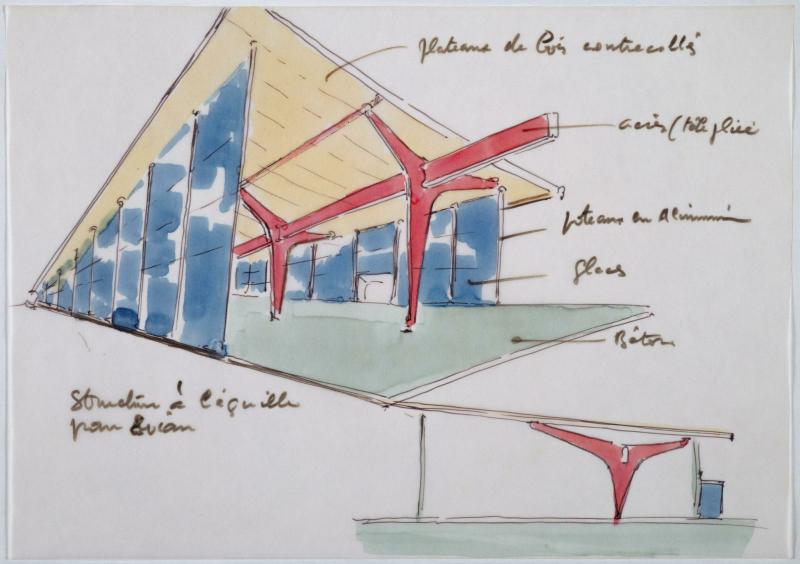 plateaux de bois contrecollés
acier (tôle pliée
poteaux en aluminium
glaces
Béton
Structure à béquille
pour Evian